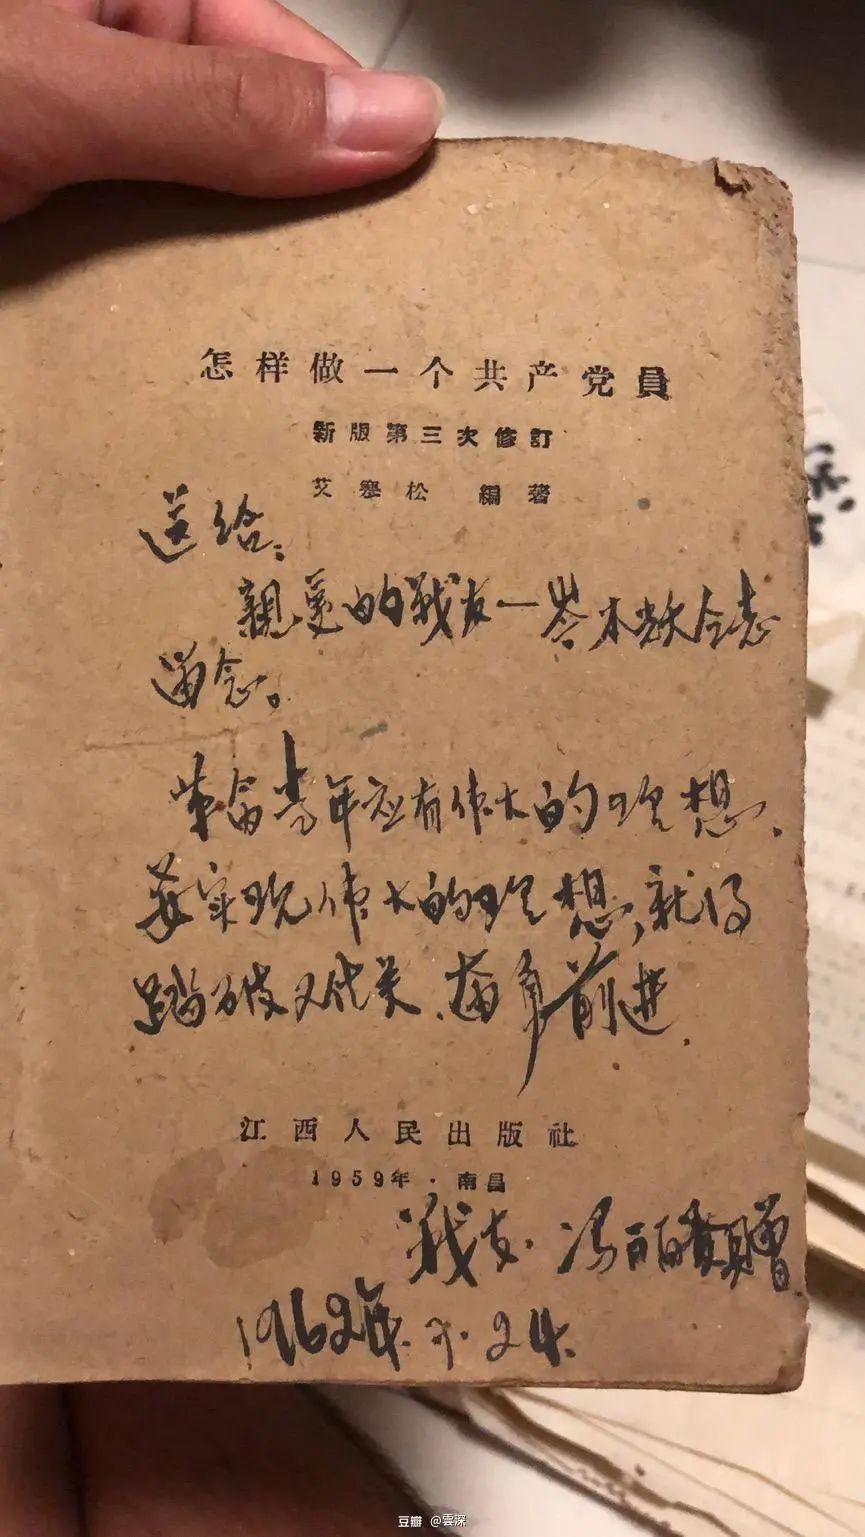 怎样做一个共产党員
新版第三次修訂
艾寒松 編著
送给:
親爱的战友一岑木
留念。
革命青年应有伟大的理想、
要实现伟大的理想,就得
踏破
奋勇前进
江西人民出版社
1959年·南昌
战友·冯
赠
1962年.7.24.
豆瓣 @雲深